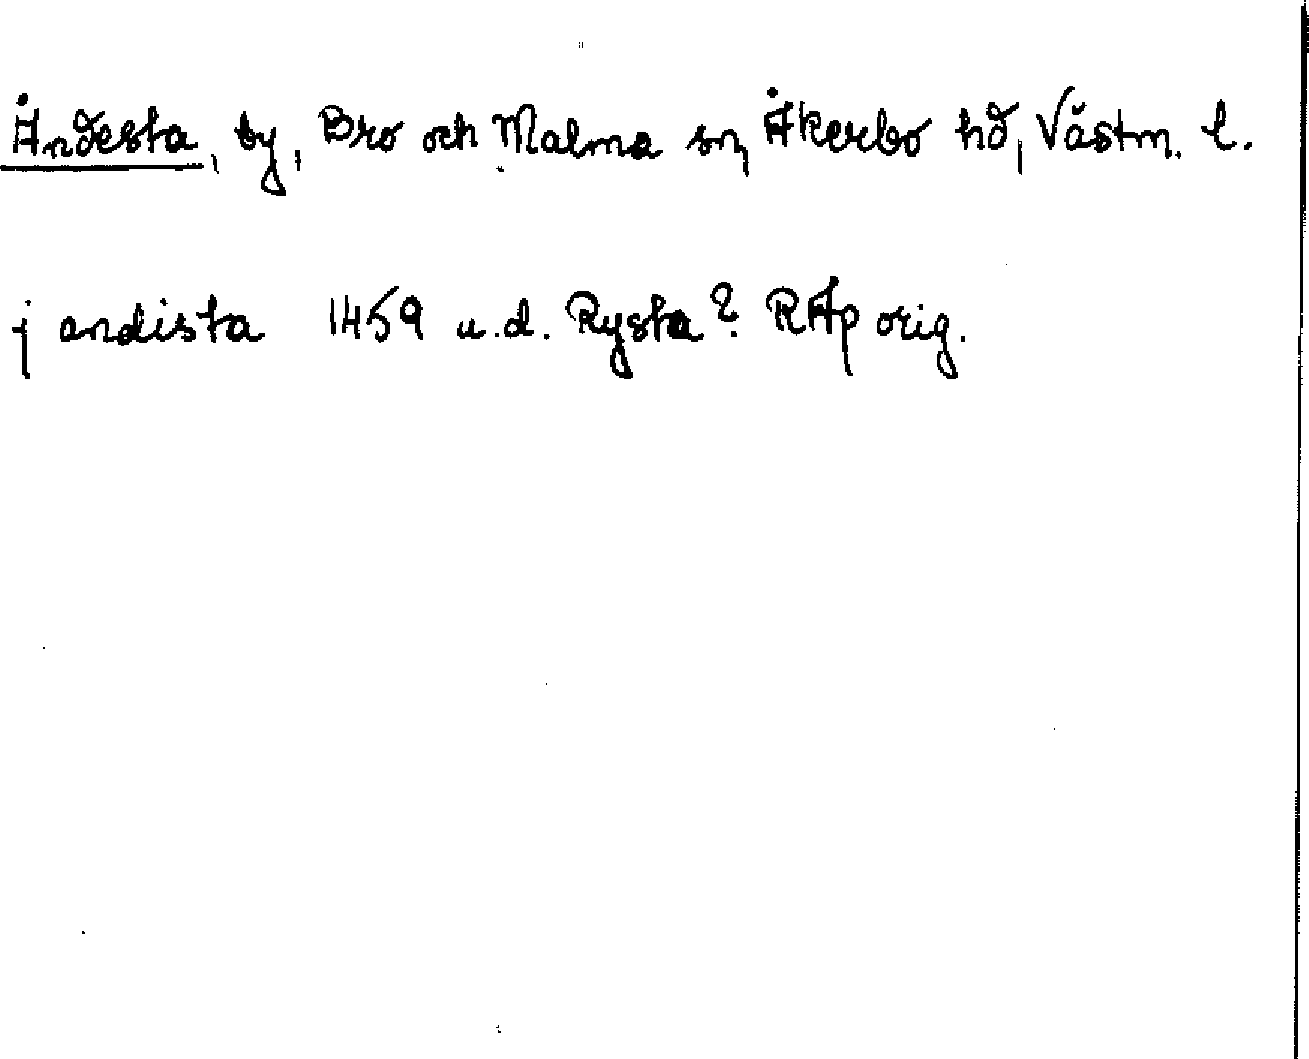 Åndesta, by, Bro och Malma sn, Åkerbo hd, Västm. l.
j andista 1459 u.d. Rysta? RAp orig.